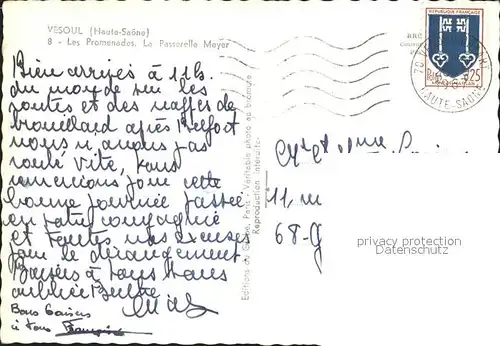 VESOUL (Haute-Saône)
8 - Les Promenades. La Passerelle Meyer
Bien arrivés à 11h.
du monde sur les
routes et des nappes de
brouillard après Belfort
nous n'avons pas
roulé vite, vous
remercions pour cette
bonne journée passée
en votre compagnie
et toutes nos excuses
pour le dérangement.
Baisers à tous sans
oublier
Bons baisers
à tous Françoise
Editions du Paris - Véritable photo au bromure
Reproduction interdite
REPUBLIQUE FRANÇAISE
0,25
70
HAUTE-SAONE
11,
68-G
privacy protection
Datenschutz